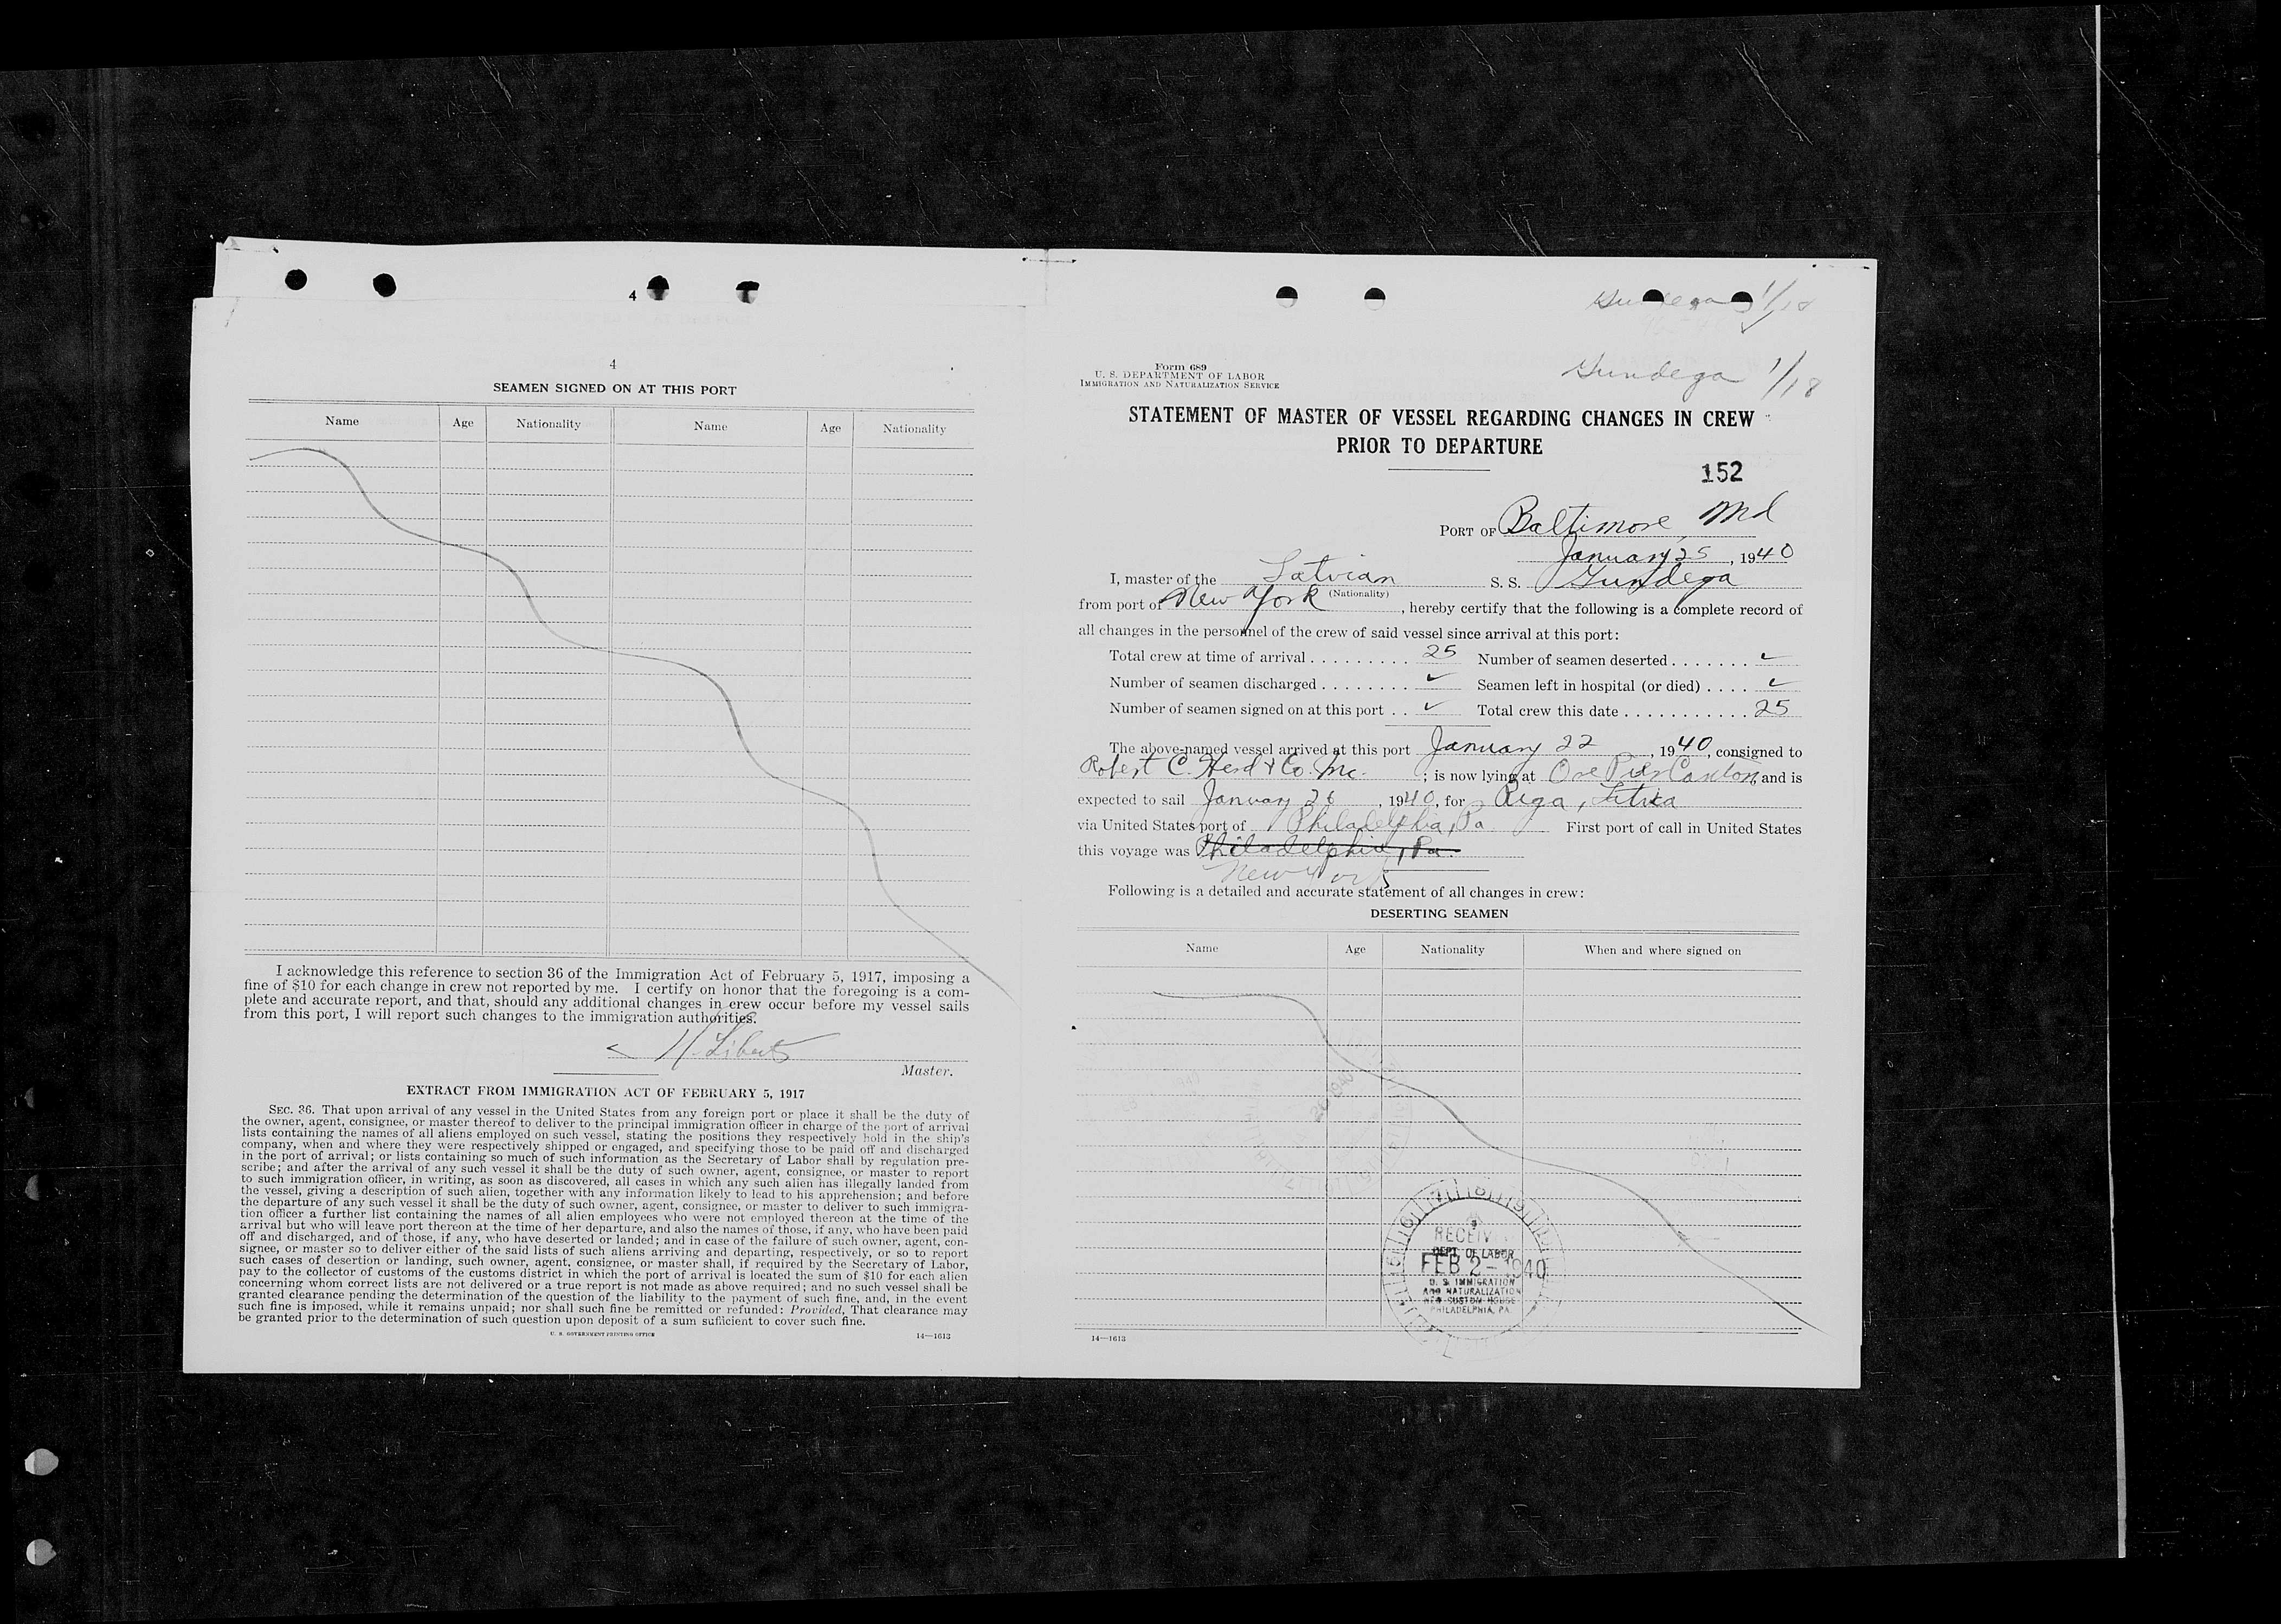 4
4
SEAMEN SIGNED ON AT THIS PORT
Name Age Nationality Name Age Nationality
I acknowledge this reference to section 36 of the Immigration Act of February 5, 1917, imposing a
fine of $10 for each change in crew not reported by me. I certify on honor that the foregoing is a com-
plete and accurate report, and that, should any additional changes in crew occur before my vessel sails
from this port, I will report such changes to the immigration authorities.
Master.
EXTRACT FROM IMMIGRATION ACT OF FEBRUARY 5, 1917
SEC. 36. That upon arrival of any vessel in the United States from any foreign port or place it shall be the duty of
the owner, agent, consignee, or master thereof to deliver to the principal immigration officer in charge of the port of arrival
lists containing the names of all aliens employed on such vessel, stating the positions they respectively hold in the ship's
company, when and where they were respectively shipped or engaged, and specifying those to be paid off and discharged
in the port of arrival; or lists containing so much of such information as the Secretary of Labor shall by regulation pre-
scribe; and after the arrival of any such vessel it shall be the duty of such owner, agent, consignee, or master to report
to such immigration officer, in writing, as soon as discovered, all cases in which any such alien has illegally landed from
the vessel, giving a description of such alien, together with any information likely to lead to his apprehension; and before
the departure of any such vessel it shall be the duty of such owner, agent, consignee, or master to deliver to such immigra-
tion officer a further list containing the names of all alien employees who were not employed thereon at the time of the
arrival but who will leave port thereon at the time of her departure, and also the names of those, if any, who have been paid
off and discharged, and of those, if any, who have deserted or landed; and in case of the failure of such owner, agent, con-
signee, or master so to deliver either of the said lists of such aliens arriving and departing, respectively, or so to report
such cases of desertion or landing, such owner, agent, consignee, or master shall, if required by the Secretary of Labor,
pay to the collector of customs of the customs district in which the port of arrival is located the sum of $10 for each alien
concerning whom correct lists are not delivered or a true report is not made as above required; and no such vessel shall be
granted clearance pending the determination of the question of the liability to the payment of such fine, and, in the event
such fine is imposed, while it remains unpaid; nor shall such fine be remitted or refunded: Provided, That clearance may
be granted prior to the determination of such question upon deposit of a sum sufficient to cover such fine.
U. S. GOVERNMENT PRINTING OFFICE 14—1613
Gundega 1/18
Gundega 1/18
Form 689
U. S. DEPARTMENT OF LABOR
IMMIGRATION AND NATURALIZATION SERVICE
STATEMENT OF MASTER OF VESSEL REGARDING CHANGES IN CREW
PRIOR TO DEPARTURE
152
PORT OF Baltimore, Md
January 25, 1940
I, master of the Latvian S. S. Gundega
(Nationality)
from port of New York, hereby certify that the following is a complete record of
all changes in the personnel of the crew of said vessel since arrival at this port:
Total crew at time of arrival . . . . . . . . . 25 Number of seamen deserted . . . . . . . ✓
Number of seamen discharged . . . . . . . . ✓ Seamen left in hospital (or died) . . . . ✓
Number of seamen signed on at this port . . ✓ Total crew this date . . . . . . . . . . . 25
The above-named vessel arrived at this port January 22, 1940, consigned to
Robert C. Herd & Co. Inc. ; is now lying at Ore Pier Canton, and is
expected to sail January 26, 1940, for Riga, Latvia
via United States port of Philadelphia, Pa First port of call in United States
this voyage was Philadelphia, Pa.
New York
Following is a detailed and accurate statement of all changes in crew:
DESERTING SEAMEN
Name Age Nationality When and where signed on
RECEIV
DEPT. OF LABOR
FEB 2 - 1940
U. S. IMMIGRATION
AND NATURALIZATION
NEW CUSTOM HOUSE
PHILADELPHIA, PA.
14—1613